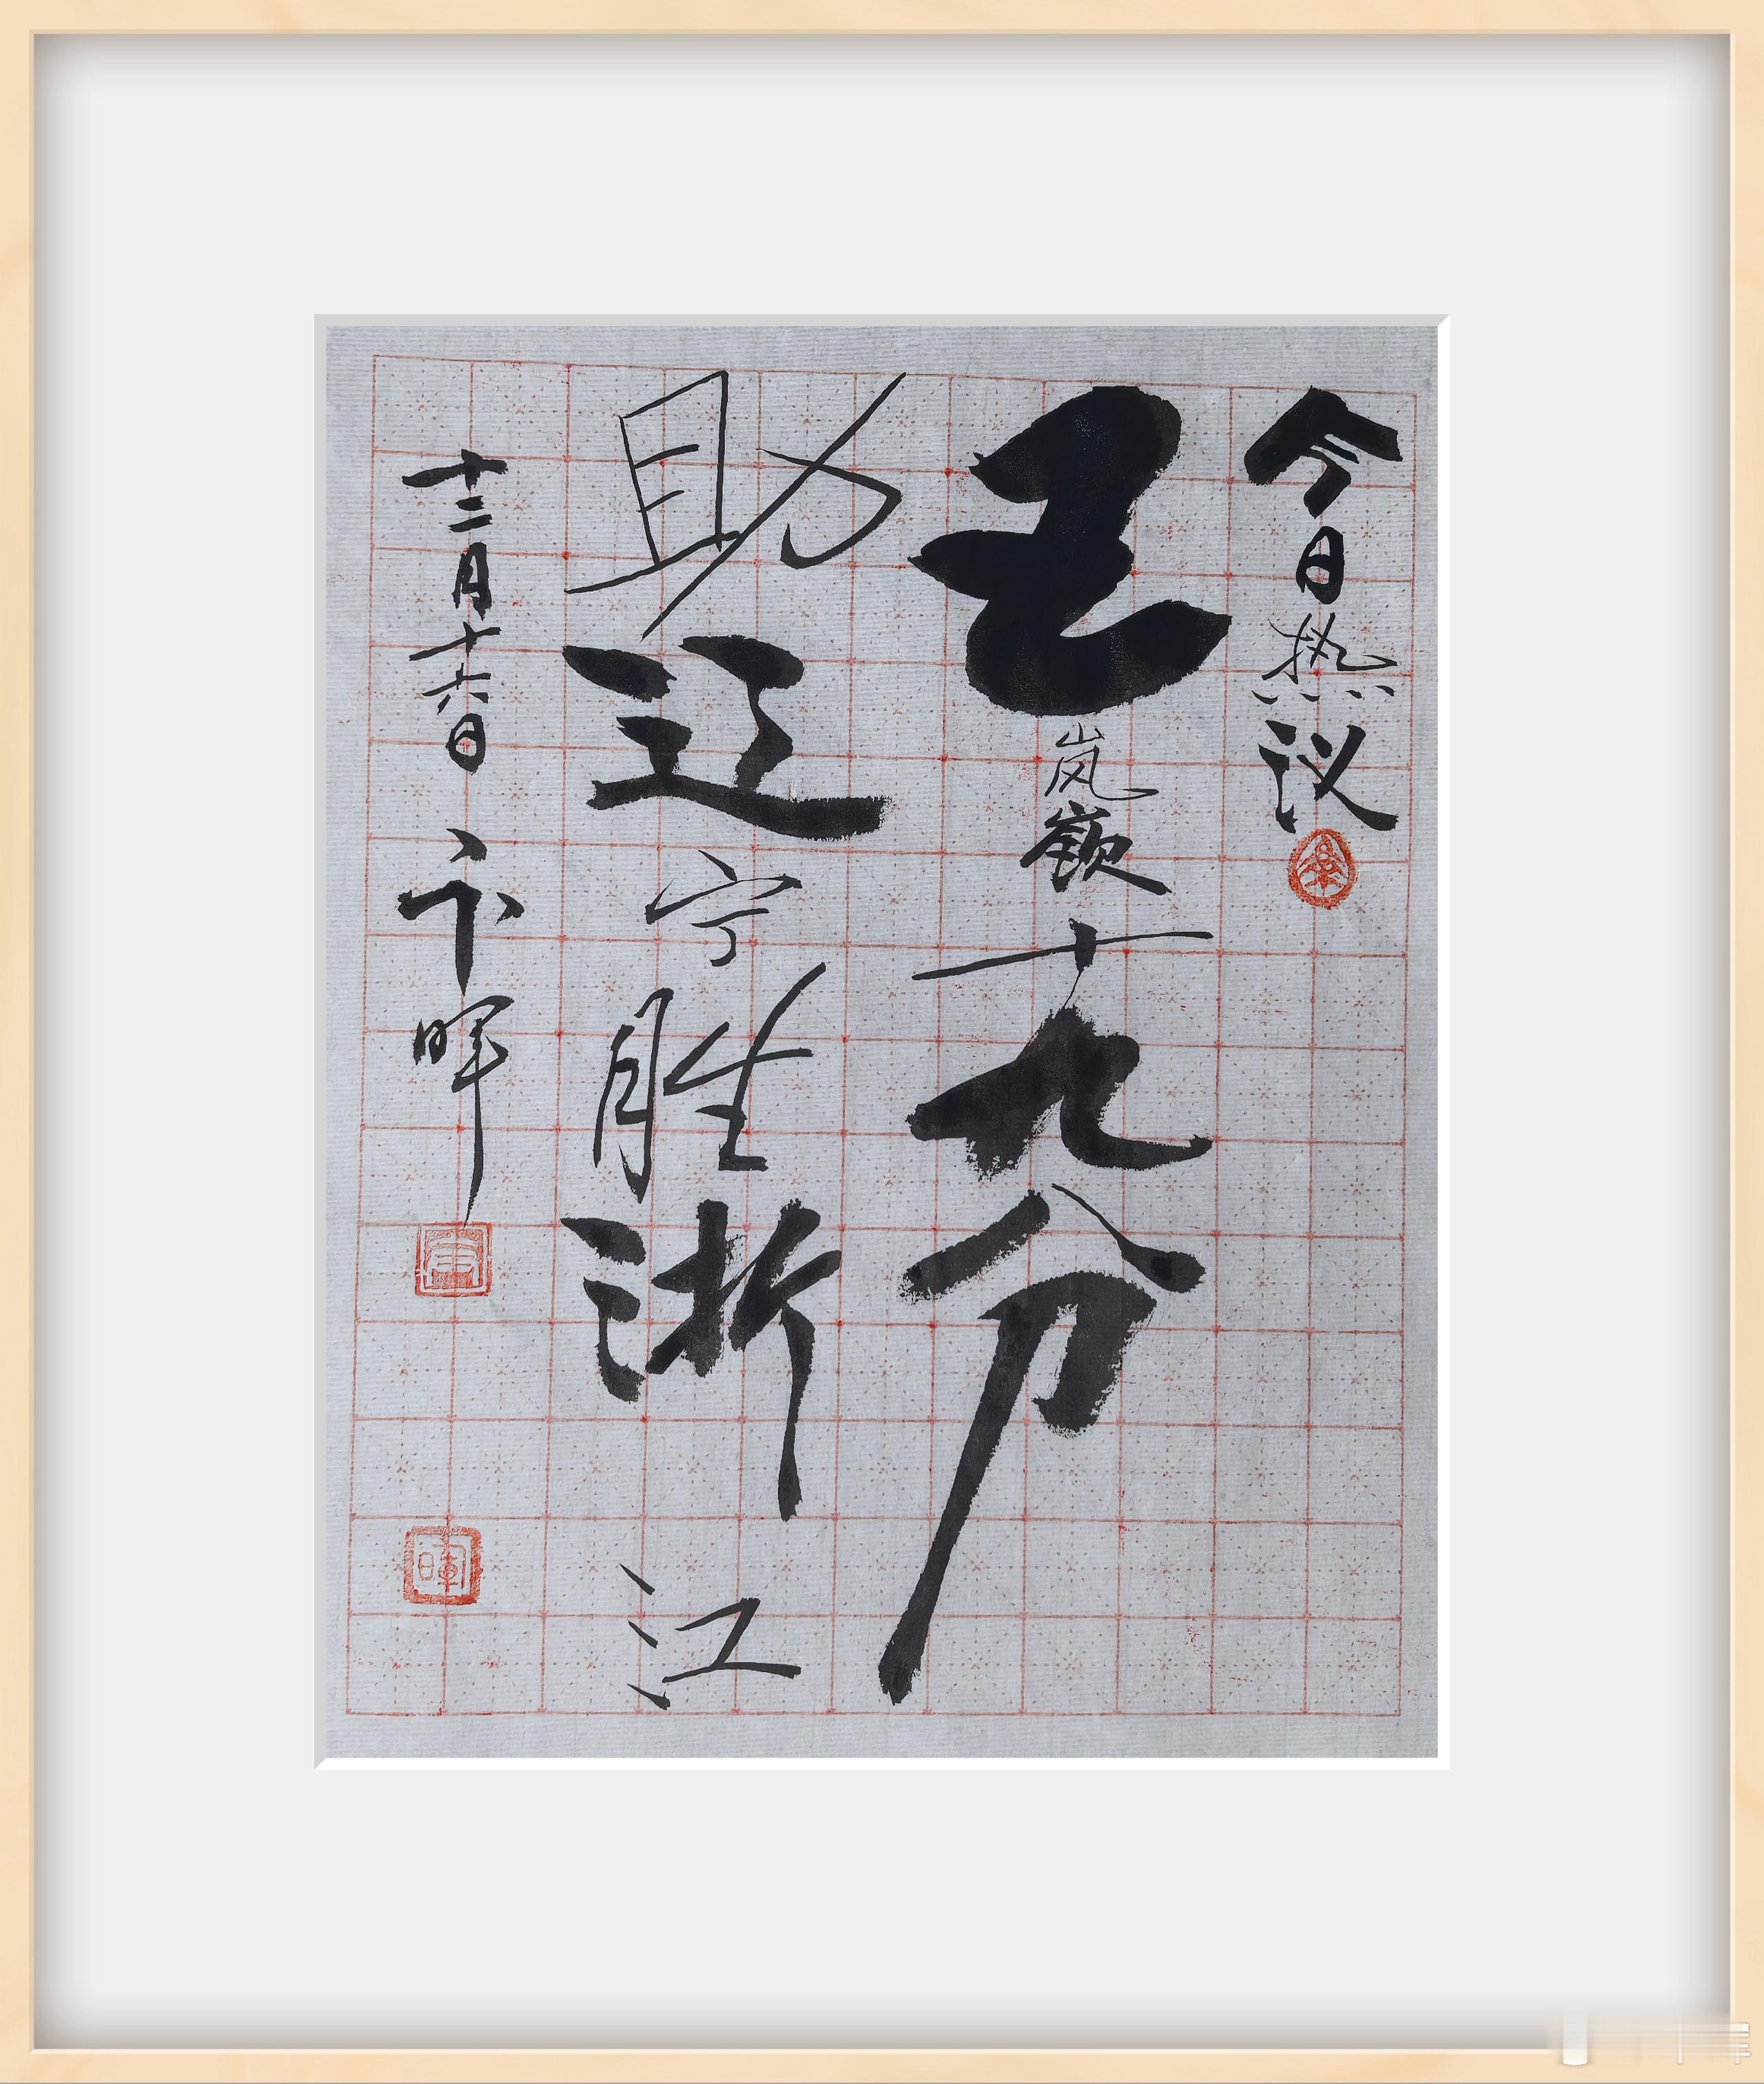 今日热议
王岚嵚十九分
助辽宁胜浙江
十二月十六日 卞晖
暉